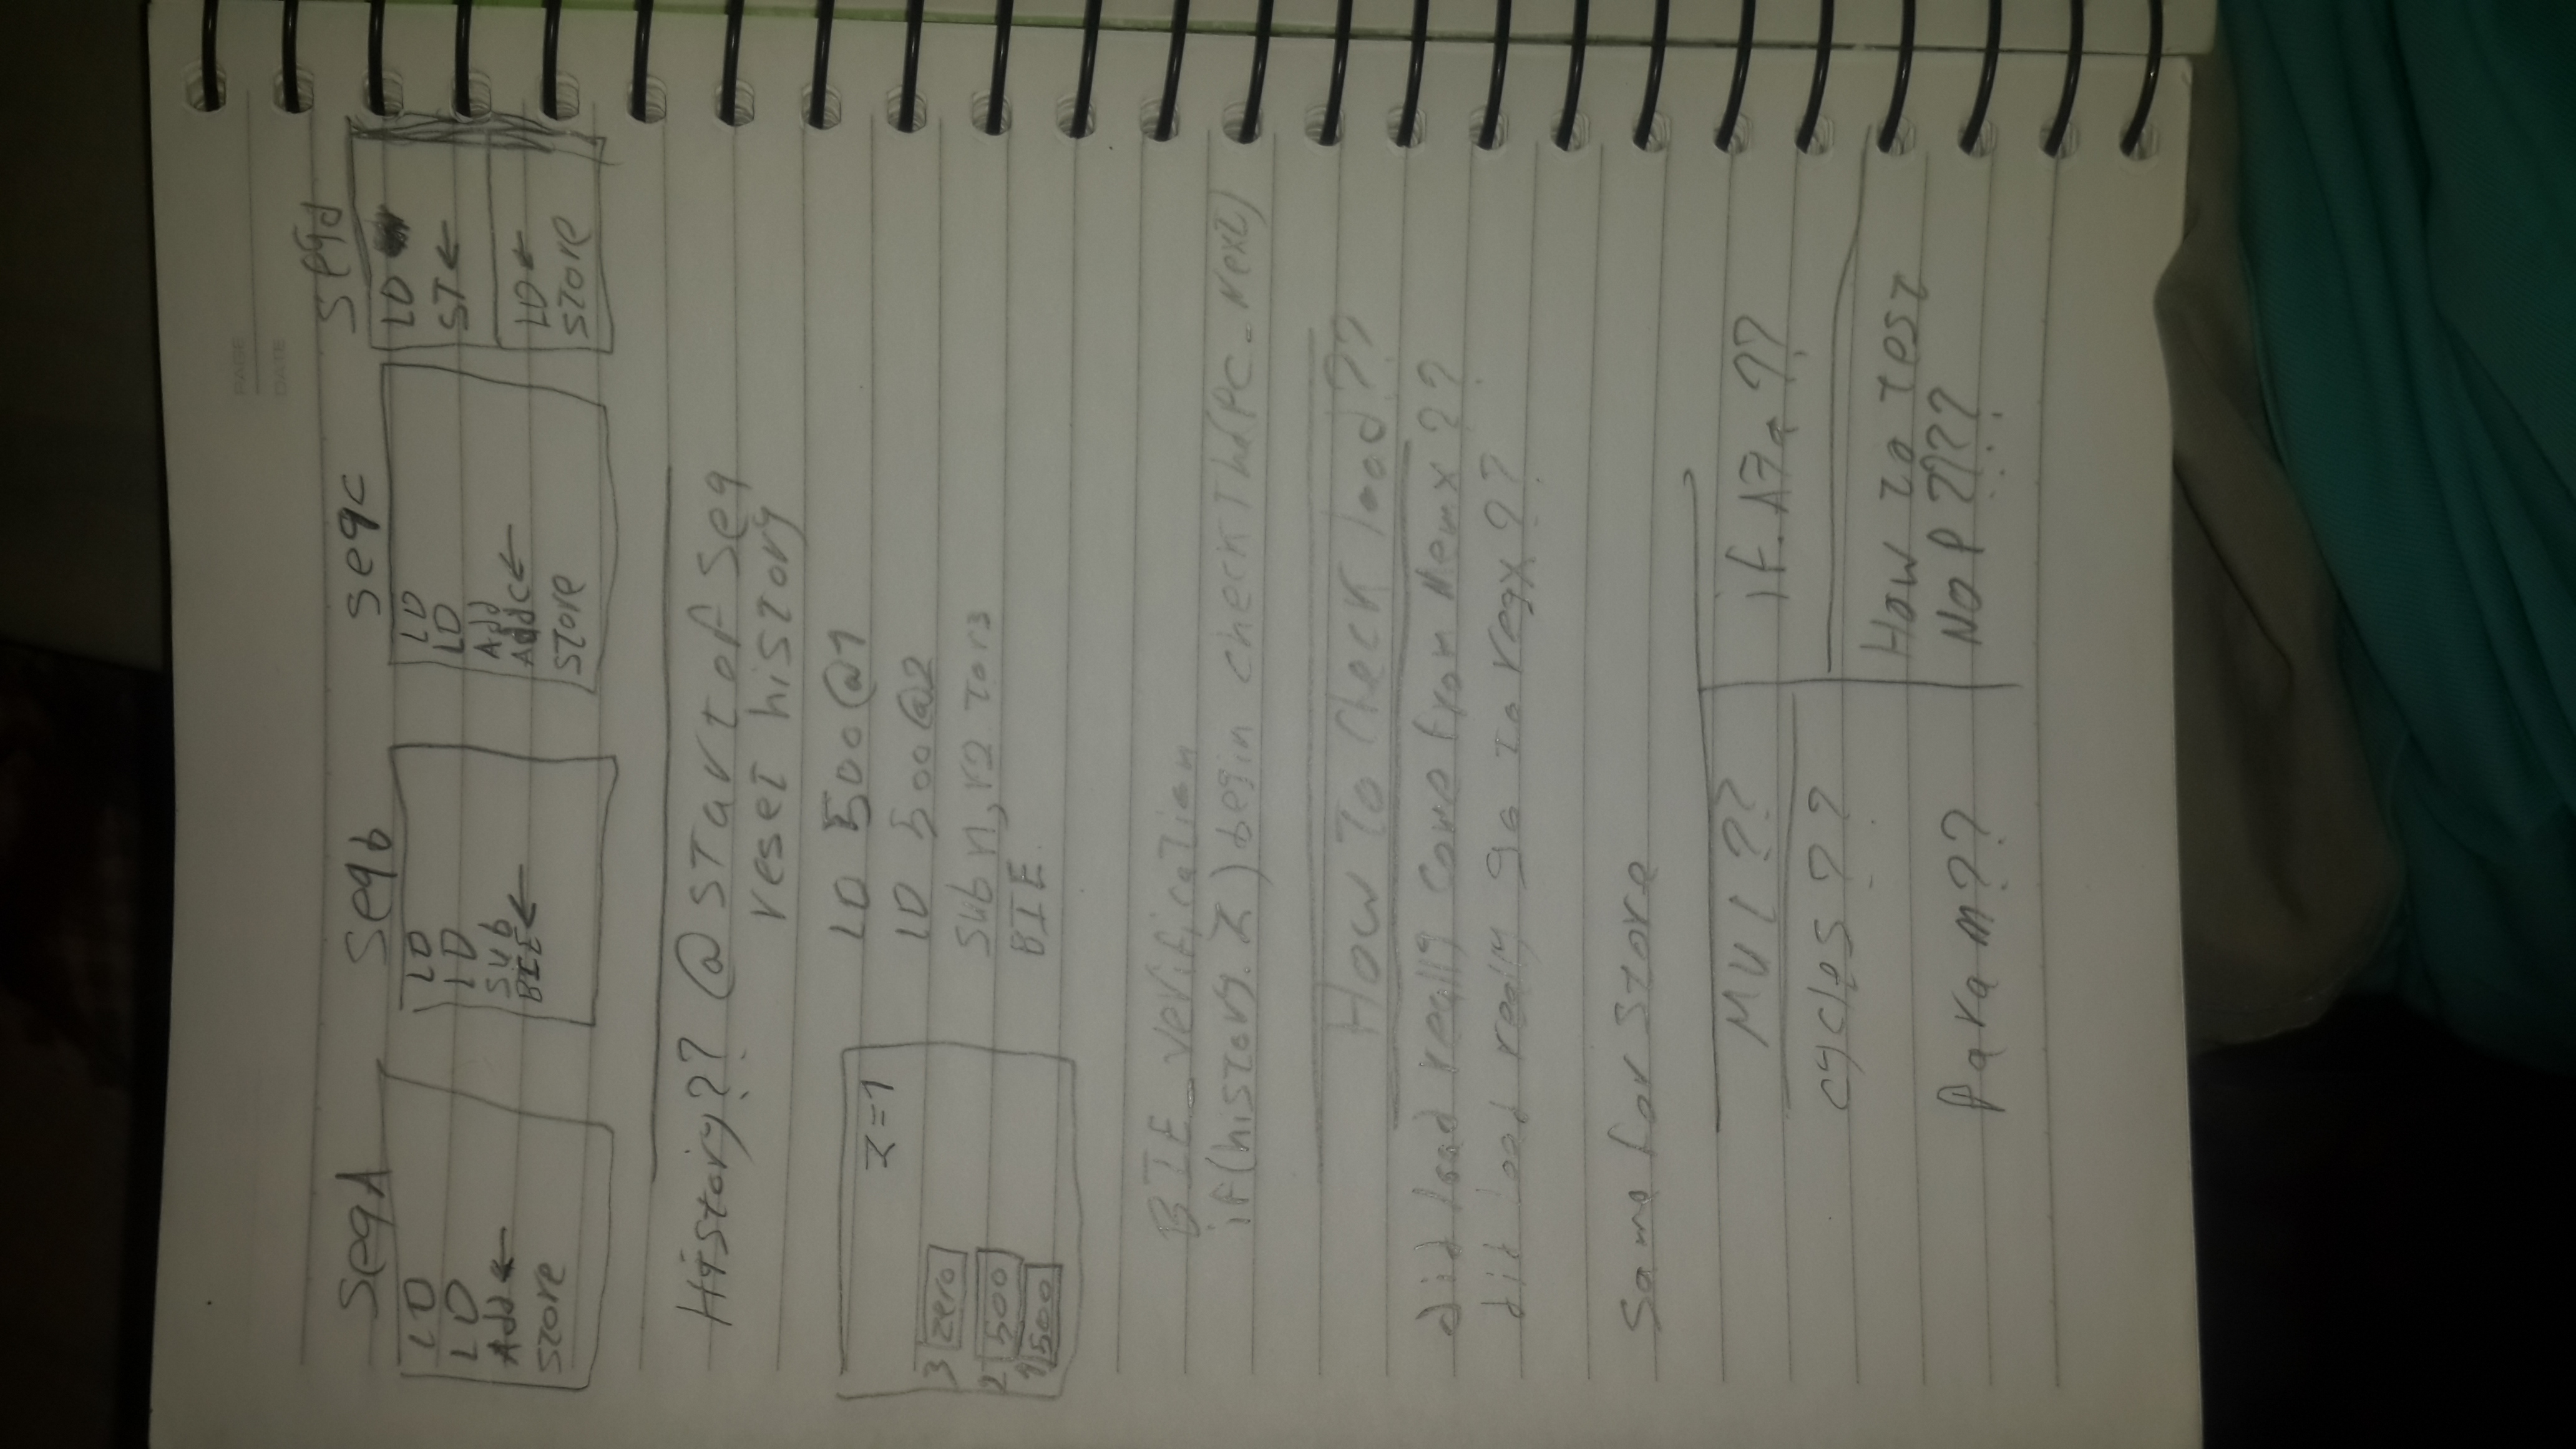 PAGE
DATE
SeqA
LD
LD
Add ←
Store
Seqb
LD
LD
Sub
BIE ←
Seqc
LD
LD
Add
Addc ←
Store
Seqd
LD
ST ←
LD ←
Store
History?? @ Start of Seq
reset history
Z=1
3 zero
2 500
1 500
LD 500@1
LD 500@2
Sub r1, r2 to r3
BIE
BIE_verification
if(history.Z) begin check The(PC_Next)
How To Check load??
did load really come from Memx??
did load really go to regx??
Same for Store
MUL??
cycles??
Param??
if.
How to test
NOP????